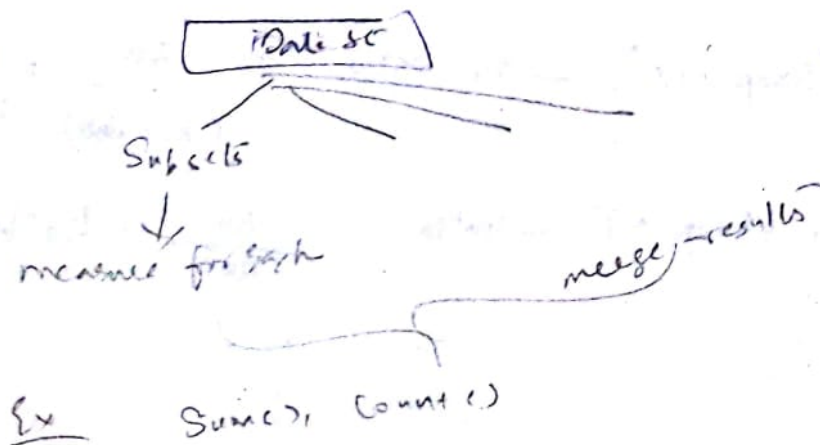 Data set
Subsets
measure for each
merge results
Ex Sum(), Count()